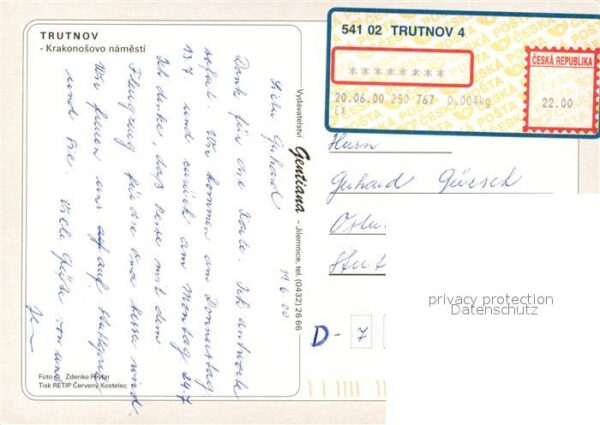 TRUTNOV
- Krakonošovo náměstí
541 02 TRUTNOV 4
********
ČESKÁ REPUBLIKA
20.06.00 250 767 0.004kg
EX
22.00
Vydavatelství Gentiana - Jilemnice, tel. (0432) 26 66
19.6.00
Lieber Gerhard
Dank für die Karte. Ich antworte
sofort. Wir kommen am Donnerstag
13.7. und zurück am Montag 24.7.
Ich denke, daß Reise mit dem
Flugzeug für die Oma besser wird.
Wir freuen uns auf Stuttgart
und Sie. Viele Grüße von uns
Herrn
Gerhard
D - 7
privacy protection
Datenschutz
Foto © Zdenko Feyfar
Tisk RETIP Červený Kostelec